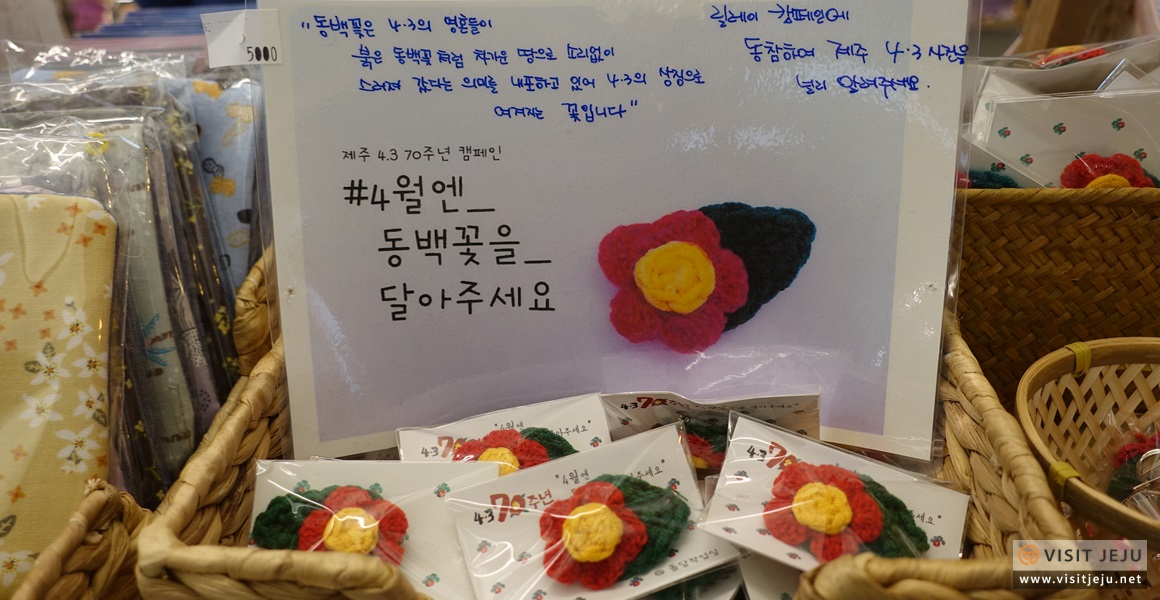 5000
"동백꽃은 4·3의 영혼들이
붉은 동백꽃처럼 차가운 땅으로 소리없이
스러져 갔다는 의미를 내포하고 있어 4·3의 상징으로
여겨지는 꽃입니다"
릴레이 캠페인에
동참하여 제주 4·3 사건을
널리 알려주세요.
제주 4.3 70주년 캠페인
#4월엔_
동백꽃을_
달아주세요
4·3 70
"4월엔
아주세요"
4·3 70주년
4·3 70주년
"4월엔
아주세요"
4·3 7
VISIT JEJU
www.visitjeju.net